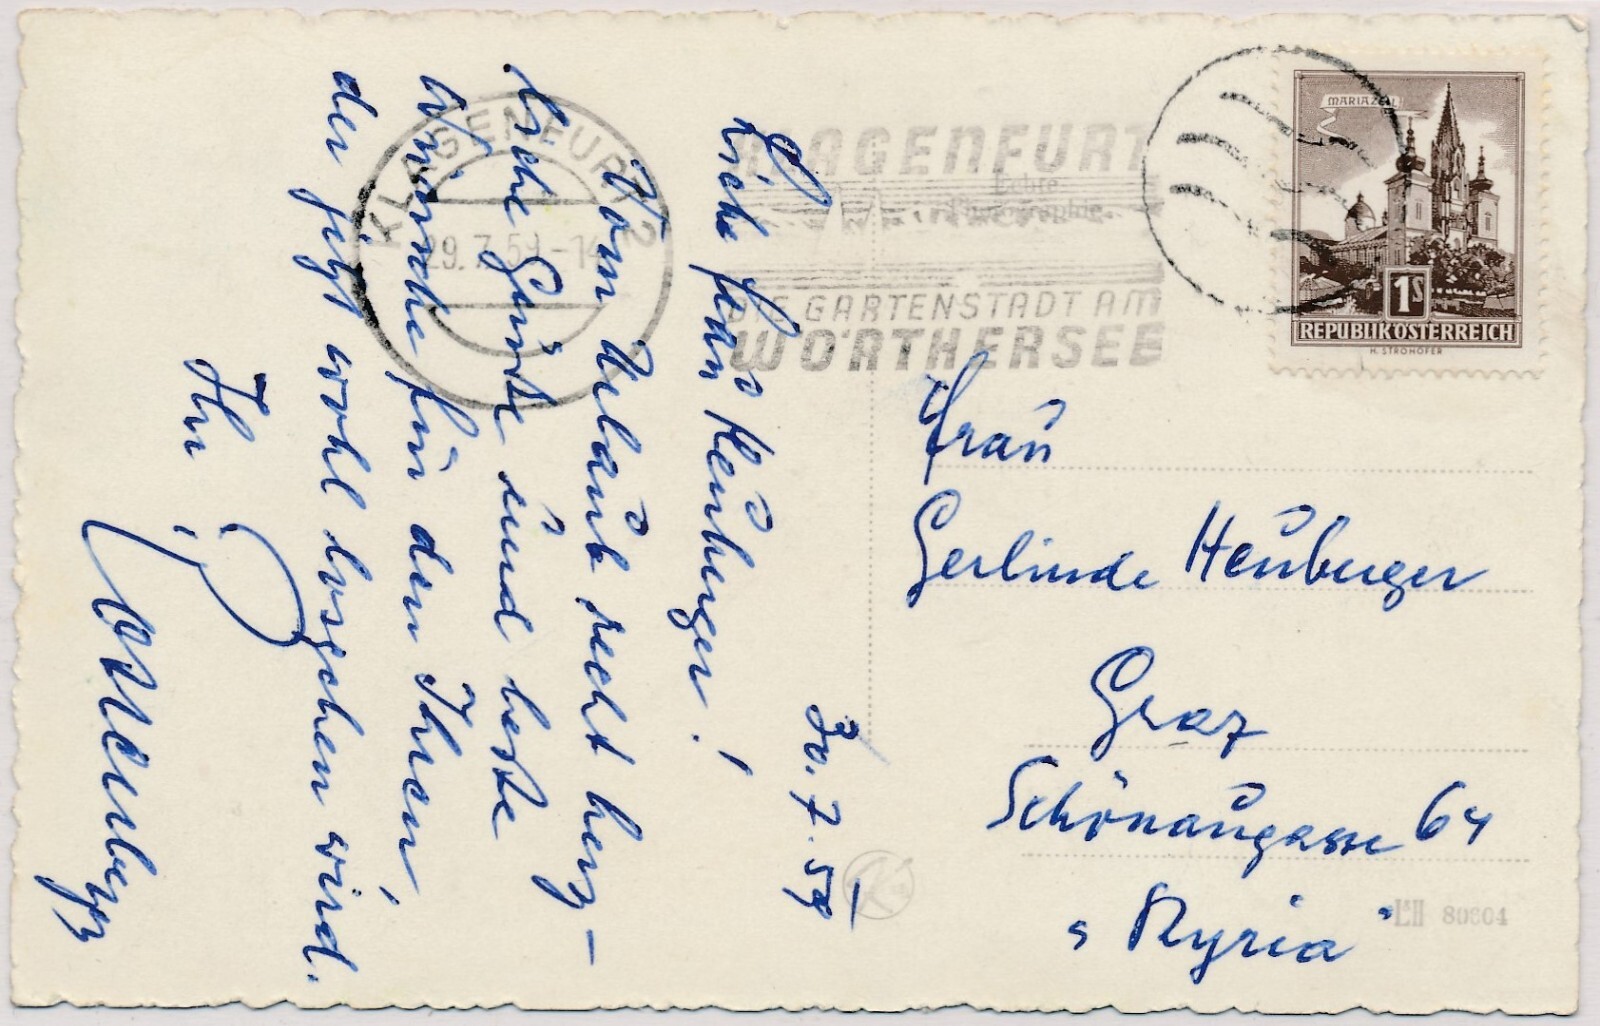 30.7.59
Liebe Frau Heuberger!
Vom Urlaub recht herz-
liche Grüße und beste
Wünsche für den Ihren,
der jetzt wohl losgehen wird.
Ihr
KLAGENFURT 2
29.7.59-14
KLAGENFURT
DIE GARTENSTADT AM
WÖRTHERSEE
Echte
Photographie
MARIAZELL
1S
REPUBLIK ÖSTERREICH
H. STROHOFER
Frau
Gerlinde Heuberger
Graz
Schönaugasse 64
"Styria"
80604